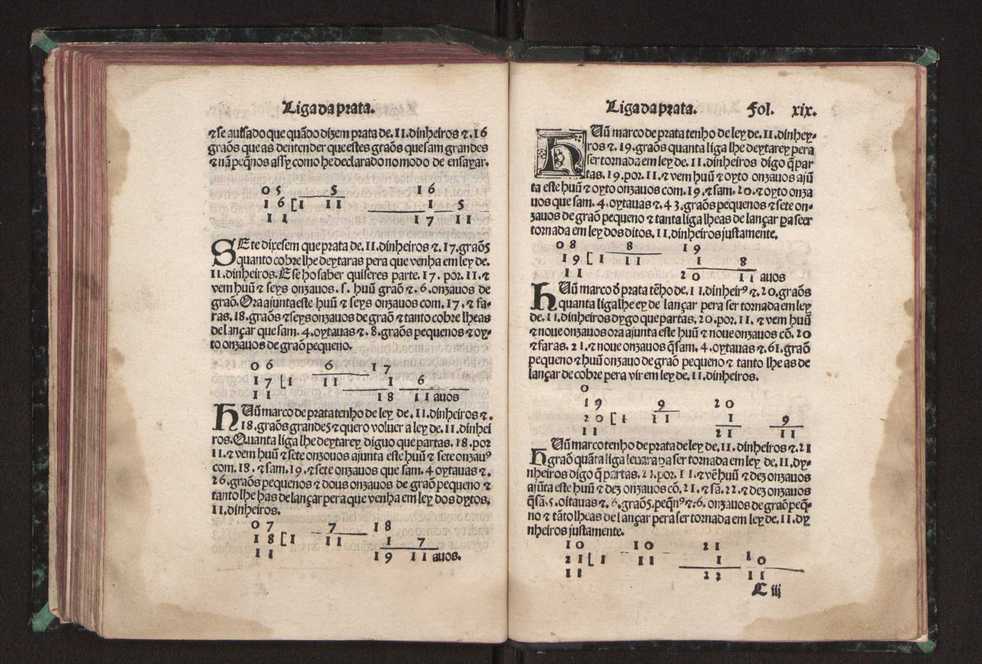 Liga da prata.
⁊ se auisado que quãdo dizem prata de .11. dinheiros ⁊ .16
graõs que as dentender que estes graõs que sam grandes
⁊ nã peq̃nos assy como he declarado no modo de ensayar.
0 5 5 1 6
1 6 [1 11 1 5
1 1 1 7 11
SE te dixesem que prata de .11. dinheiros ⁊ .17. graõs
quanto cobre lhe deytaras pera que venha em ley de.
11. dinheiros. E se ho saber quiseres parte .17. por .11. ⁊
vem huũ ⁊ seys onzauos .s. huũ graõ ⁊ .6. onzauos de
graõ. Ora ajunta este huũ ⁊ seys onzauos com .17. ⁊ fa-
ras .18. graõs ⁊ seys onzauos de graõ ⁊ tanto cobre lhe as
de lançar que sam .4. oytauas ⁊ .8. graõs pequenos ⁊ oy-
to onzauos de graõ pequeno.
0 6 6 1 7
1 7 [1 11 1 6
1 1 1 8 11 auos
HUũ marco de prata tenho de ley de .11. dinheiros ⁊.
18. graõs grandes ⁊ quero voluer a ley de .11. dinhei
ros. Quanta liga lhe deytarey diguo que partas .18. por
11. ⁊ vem huũ ⁊ sete onzouos ajunta este huũ ⁊ sete onzauꝰ
com .18. ⁊ sam .19. ⁊ sete onzauos que sam .4 oytauas ⁊.
26. graõs pequenos ⁊ dous onzauos de graõ pequeno ⁊
tanto lhe has de lançar pera que venha em ley dos dytos.
11. dinheiros.
0 7 7 1 8
1 8 [1 11 1 7
1 1 1 9 11 auos.
Liga da prata. Fol. xix.
HUũ marco de prata tenho de ley de .11. dinhey-
ros ⁊ .19. graõs quanta liga lhe deytarey pera
ser tornada em ley de .11. dinheiros digo q̃ par
tas .19. por .11. ⁊ vem huũ ⁊ oyto onzauos ajũ
ta este huũ ⁊ oyto onzauos com .19. ⁊ sam .20. ⁊ oyto onza
uos que sam .4. oytauas ⁊ .43. graõs pequenos ⁊ sete on-
zauos de graõ pequeno ⁊ tanta liga lhe as de lançar ꝑa ser
tornada em ley dos ditos .11. dinheiros justamente.
0 8 8 1 9
1 9 [1 11 1 8
1 1 2 0 11 auos
HUũ marco õ prata tẽho de .11. dinheirꝰ ⁊ .20. graõs
quanta liga lhe ey de lançar pera ser tornada em ley
de .11. dinheiros dygo que partas .20. por .11. ⁊ vem huũ
⁊ noue onzauos ora ajunta este huũ ⁊ noue onzauos cõ .20
⁊ faras .21. ⁊ noue onzauos q̃ sam .4. oytauas ⁊ .61. graõ
pequeno ⁊ huũ onzauo de graõ pequeno ⁊ tanto lhe as de
lançar de cobre pera vir em ley de .11. dinheiros.
0
1 9 9 2 0
2 0 [1 11 1 9
1 1 2 1 11
HUũ marco tenho de prata de ley de .11. dinheiros ⁊ .21
graõ quãta liga leuara ꝑa ser tornada em ley de .11. dy-
nheiros digo q̃ partas .21. por .11. ⁊ vẽ huũ ⁊ dez onzauos
ajũta este huũ ⁊ dez onzauos cõ .21. ⁊ sã .22. ⁊ dez onzauos
q̃ sã .5. oitauas ⁊ .6. graõs peq̃nꝰ ⁊ .6. onzauos de graõ peq̃-
no ⁊ tãto lhe as de lançar pera ser tornada em ley de .11. dy
nheiros justamente.
1 0 1 0 2 1
2 1 [1 11 1 1 0
1 1 2 2 11
C iij